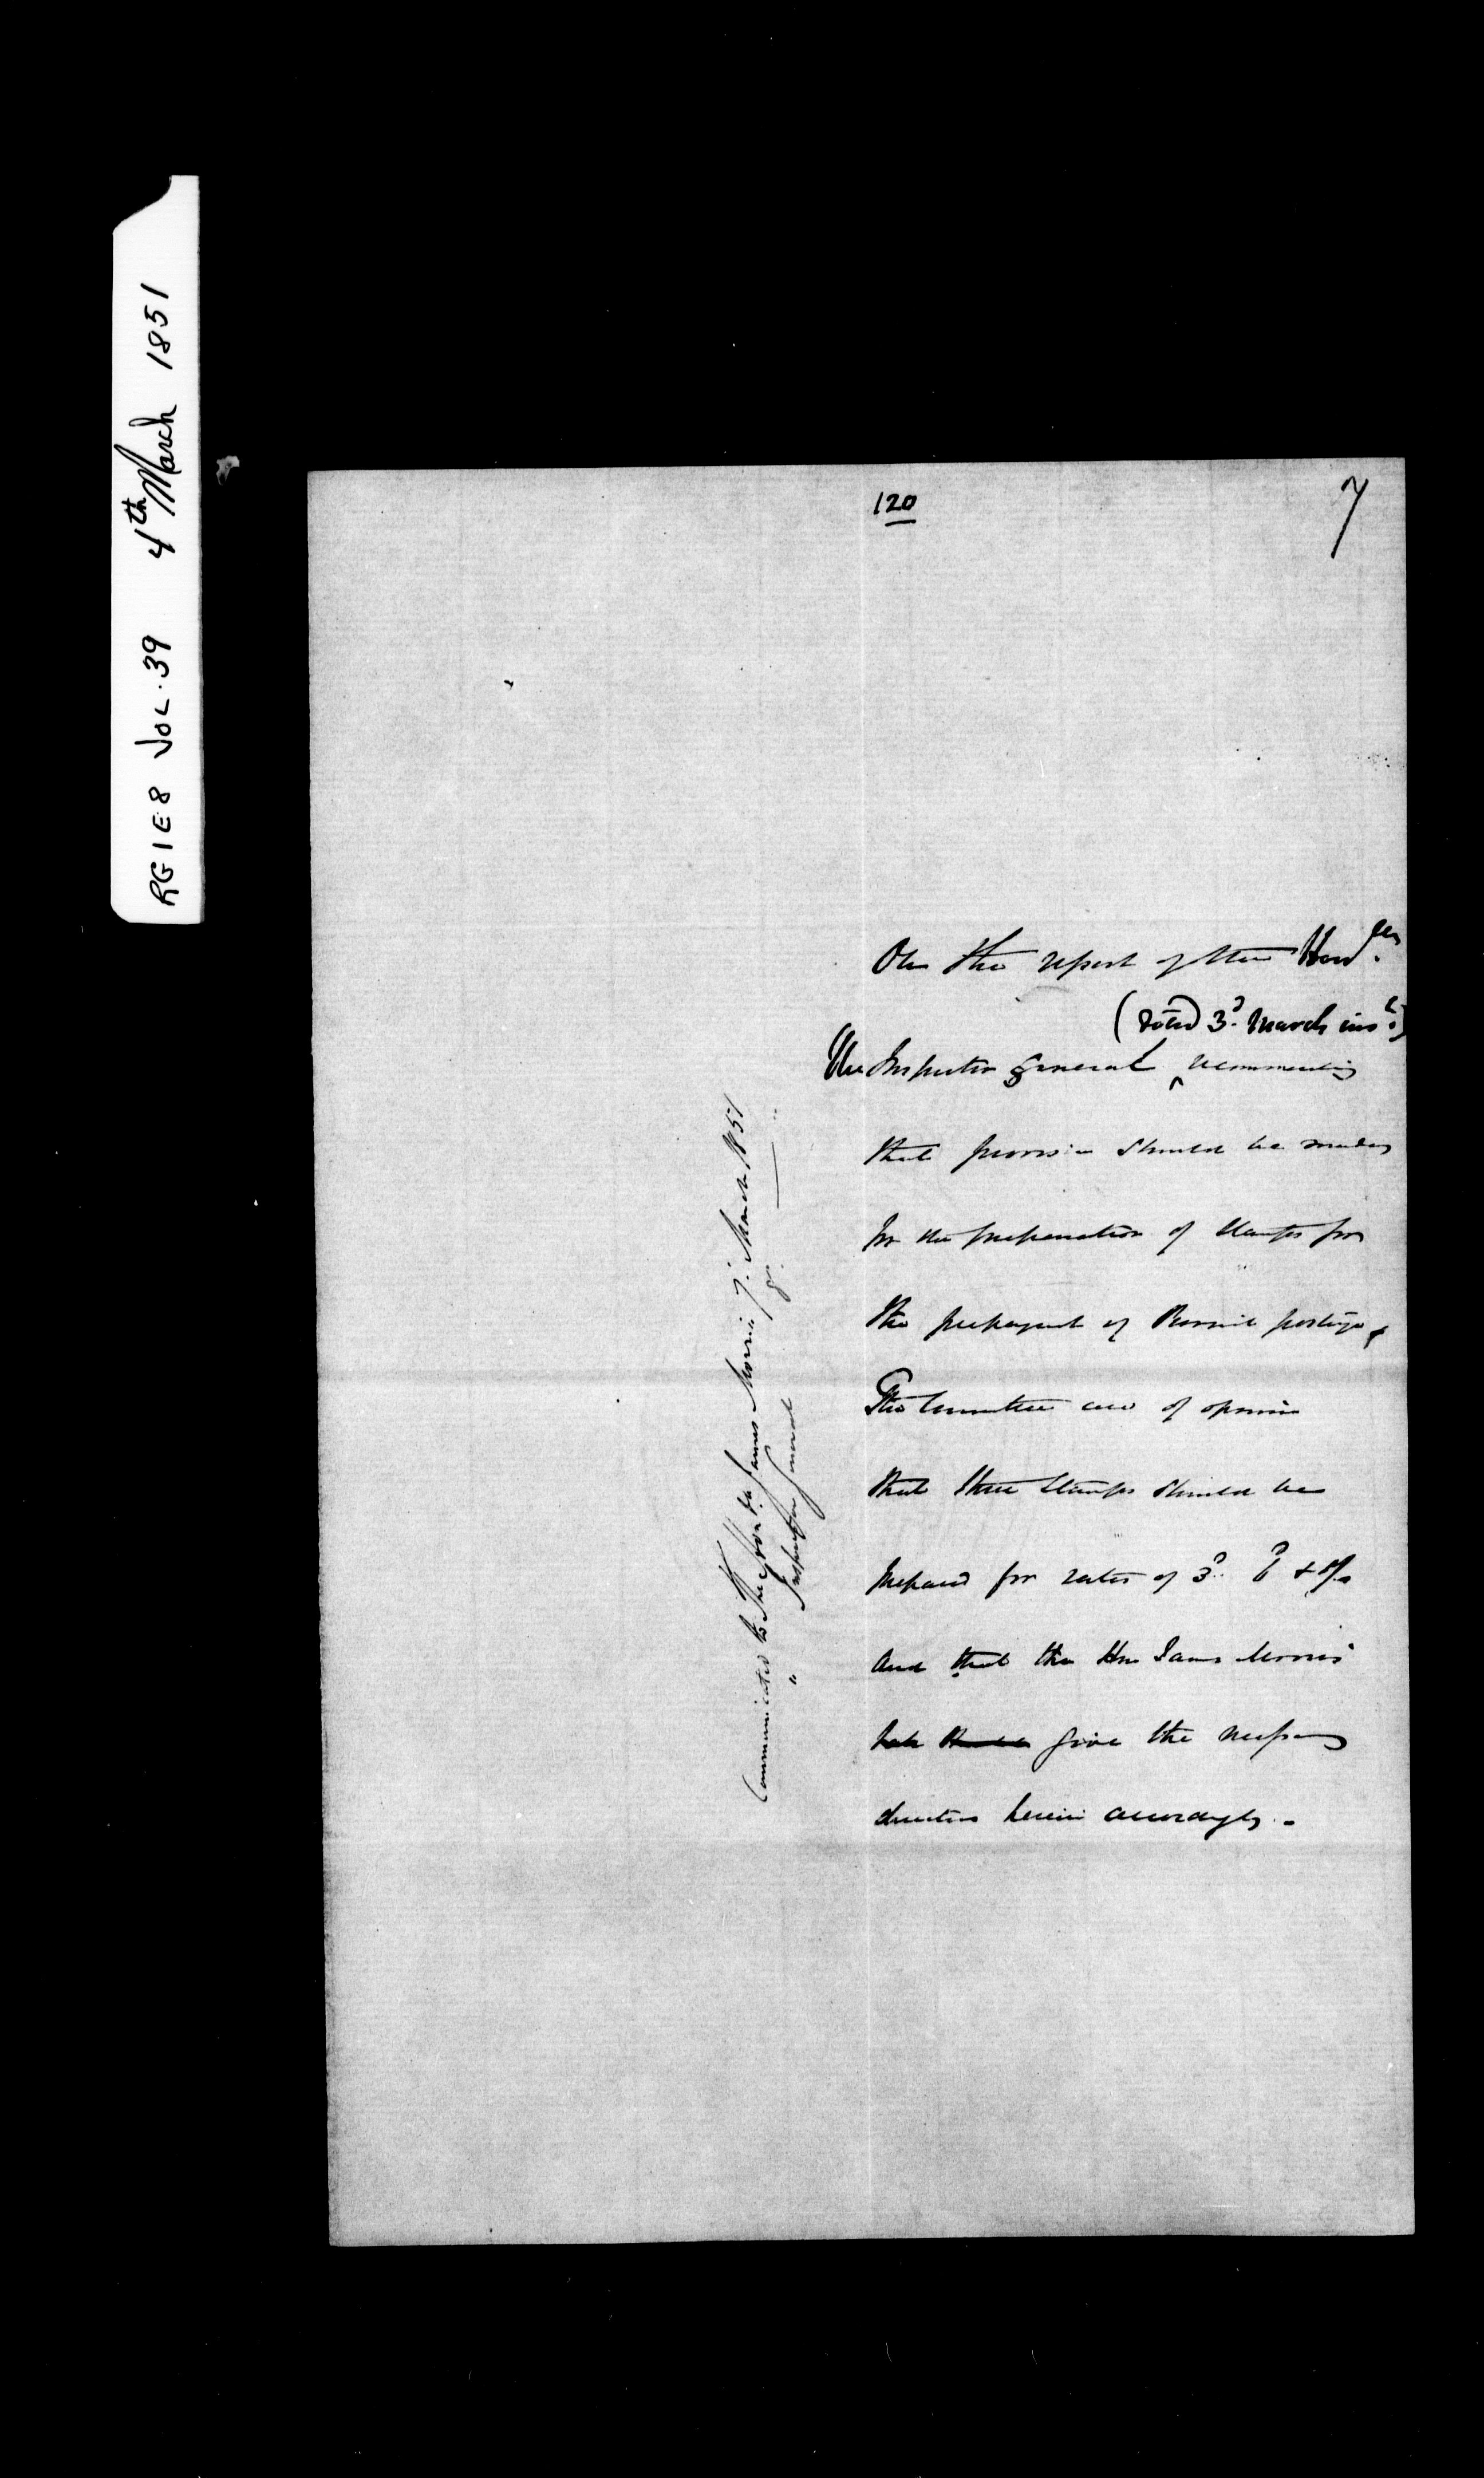 RG 1 E8 VOL. 39 4th March 1851
120
7
On the report of the Honble
(dated 3d March inst.)
The Inspector General ^ recommending
that provision should be made
for the preparation of Stamps for
the prepayment of postage,
The Committee are of opinion
that three Stamps should be
prepared for rates of 3d 6d & 1/
and that the Hon James Morris
give the necessary
directions herein accordingly. -
Communicated to The Honble James Morris 7. March 1851
" Inspector General 8.